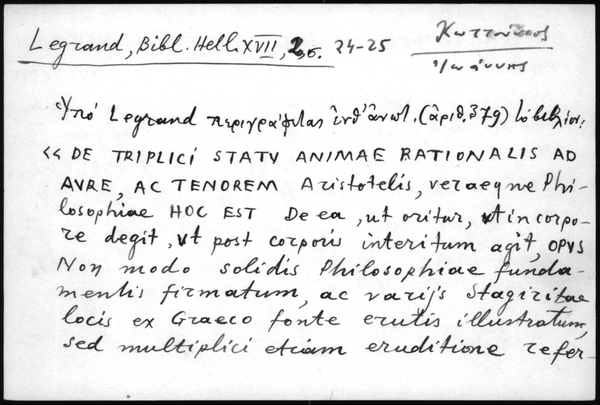 Legrand, Bibl. Hell. XVII, 2, σ. 24-25
Κωττούνιος
Ἰωάννης
Ὑπό Legrand περιγράφεται ἐνθ' ἀνωτ. (ἀριθ. 379) τό βιβλίον:
« DE TRIPLICI STATV ANIMAE RATIONALIS AD
AVRE, AC TENOREM Aristotelis, veraeque Phi-
losophiae HOC EST De ea, ut oritur, ut in corpo-
re degit, ut post corporis interitum agit, OPVS
Non modo solidis Philosophiae funda-
mentis firmatum, ac varijs Stagiritae
locis ex Graeco fonte erutis illustratum,
sed multiplici etiam eruditione refer-